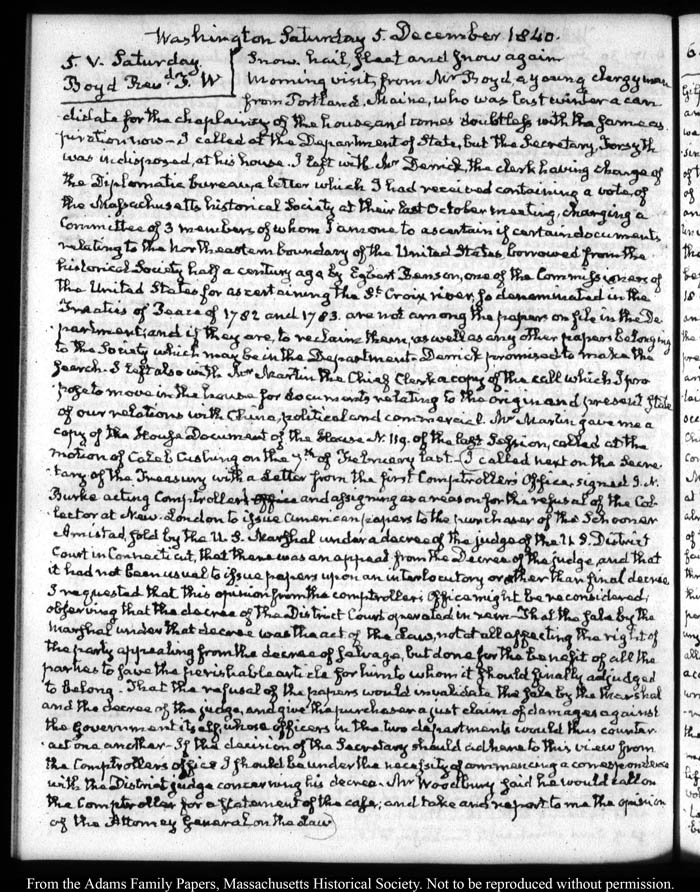 Washington Saturday 5. December 1840.
5. V. Saturday. Snow. hail, sleet and snow again
Boyd Revd. J. W Morning visit, from Mr Boyd, a young clergyman
from Portland, Maine, who was last winter a can
didate for the chaplaincy of the house, and comes doubtless with the same as
piration now — I called at the Department of State, but the Secretary, Forsyth
was indisposed, at his house. I left with Mr Derrick, the clerk having charge of
the Diplomatic bureau, a letter which I had received containing a vote, of
the Massachusetts historical Society at their last October meeting, charging a
Committee of 3 members of whom I am one to ascertain if certain documents
relating to the northeastern boundary of the United States, borrowed from the
historical Society half a century ago by Egbert Benson, one of the Commissioners of
the United States for ascertaining the St. Croix river, so denominated in the
Treaties of Peace of 1782 and 1783. are not among the papers on file in the De
partment; and if they are, to reclaim them, as well as any other papers belonging
to the Society which may be in the Department. Derrick promised to make the
search. I left also with Mr Martin the Chief Clerk a copy of the call which I pro
pose to move in the house for documents relating to the origin and present state
of our relations with China, political and commercial. Mr Martin gave me a
copy of the House Document of the House N. 119. of the last Session, called at the
motion of Caleb Cushing on the 7th of February last. I called next on the Secre
tary of the Treasury with a Letter from the first Comptrollers Office, signed J. N.
Burke acting Comptroller and assigning as a reason for the refusal of the Col
lector at New-London to issue American papers to the purchaser of the Schooner
Amistad, sold by the U. S. Marshal under a decree of the judge of the U S. District
Court in Connecticut, that there was an appeal from the Decree of the judge, and that
it had not been usual to issue papers upon an interlocutory or other than final decree
I requested that this opinion from the comptrollers Office might be reconsidered;
observing that the decree of the District Court operated in rem — That the sale by the
Marshal under that decree was the act of the Law, not at all affecting the right of
the party appealing from the decree of salvage, but done for the benefit of all the
parties to save the perishable article for him to whom it should finally adjudged
to belong. That the refusal of the papers would invalidate the sale by the Marshal
and the decree of the judge, and give the purchaser a just claim of damages against
the Government itself, whose officers in the two departments would thus counter
act one another — If the decision of the Secretary should adhere to this view from
the Comptrollers office I should be under the necessity of commencing a correspondence
with the District judge concerning his decree. Mr Woodbury said he would call on
the Comptroller for a statement of the case; and take and report to me the opinion
of the Attorney General on the Law
From the Adams Family Papers, Massachusetts Historical Society. Not to be reproduced without permission.